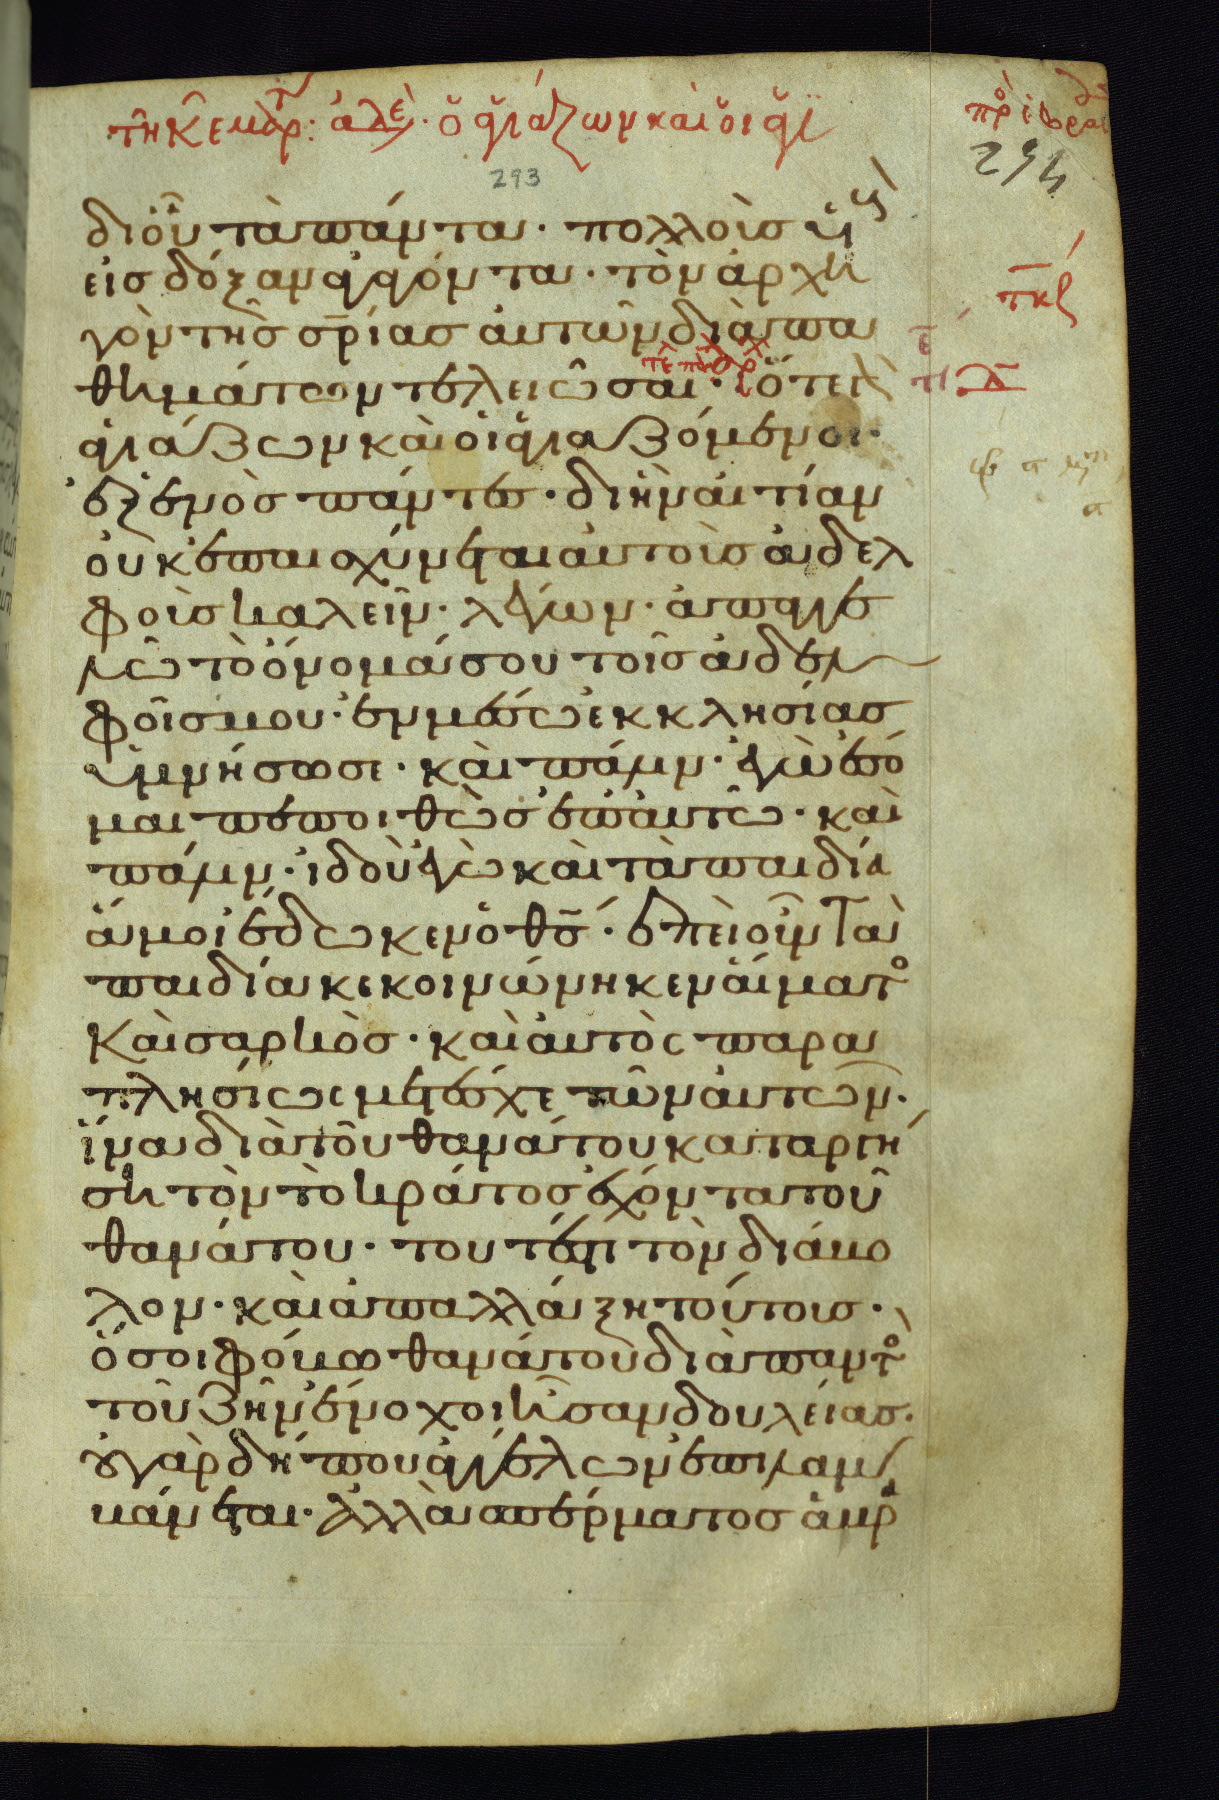 τῆ κ εμδρ: ἀδε· ὅ ἁγιάζων καὶ οἱ ἁγι
πρ ἑβραι
293
294
δι οὗ τὰ πάντα· πολλοὺς υἱοὺς
εἰς δόξαν ἀγαγόντα· τὸν ἀρχη
γὸν τῆς σρίας αὐτῶν διὰ πα
θημάτων τελειῶσαι· ὅ τε
ἁγιάζων καὶ οἱ ἁγιαζόμενοι·
ἐξ ἑνὸς πάντες· δι ἣν αἰτίαν
οὐκ ἐπαισχύνεται αὐτοὺς ἀδελ
φοὺς καλεῖν· λέγων· ἀπαγγε
λῶ τὸ ὄνομά σου τοῖς ἀδελ
φοῖς μου· ἐν μέσω ἐκκλησίας
ὑμνήσω σε· καὶ πάλιν· ἐγὼ ἔσο
μαι πεποιθὼς ἐπ αὐτῶ· καὶ
πάλιν· ἰδοὺ ἐγὼ καὶ τὰ παιδία
ἅ μοι ἔδωκεν ὁ θς· ἐπεὶ οὖν τὰ
παιδία κεκοινώνηκεν αἵματο
καὶ σαρκὸς· καὶ αὐτὸς παρα
πλησίως μετέσχε τῶν αὐτῶν·
ἵνα διὰ τοῦ θανάτου καταργή
ση τὸν τὸ κράτος ἔχοντα τοῦ
θανάτου· τουτέστι τὸν διάβο
λον· καὶ ἀπαλλάξη τούτους·
ὅσοι φόβω θανάτου διὰ παντο
τοῦ ζῆν ἔνοχοι ἦσαν δουλείας·
οὐ γὰρ δήπου ἀγγέλων ἐπιλαμ
βάνεται· ἀλλὰ σπέρματος ἁβρ